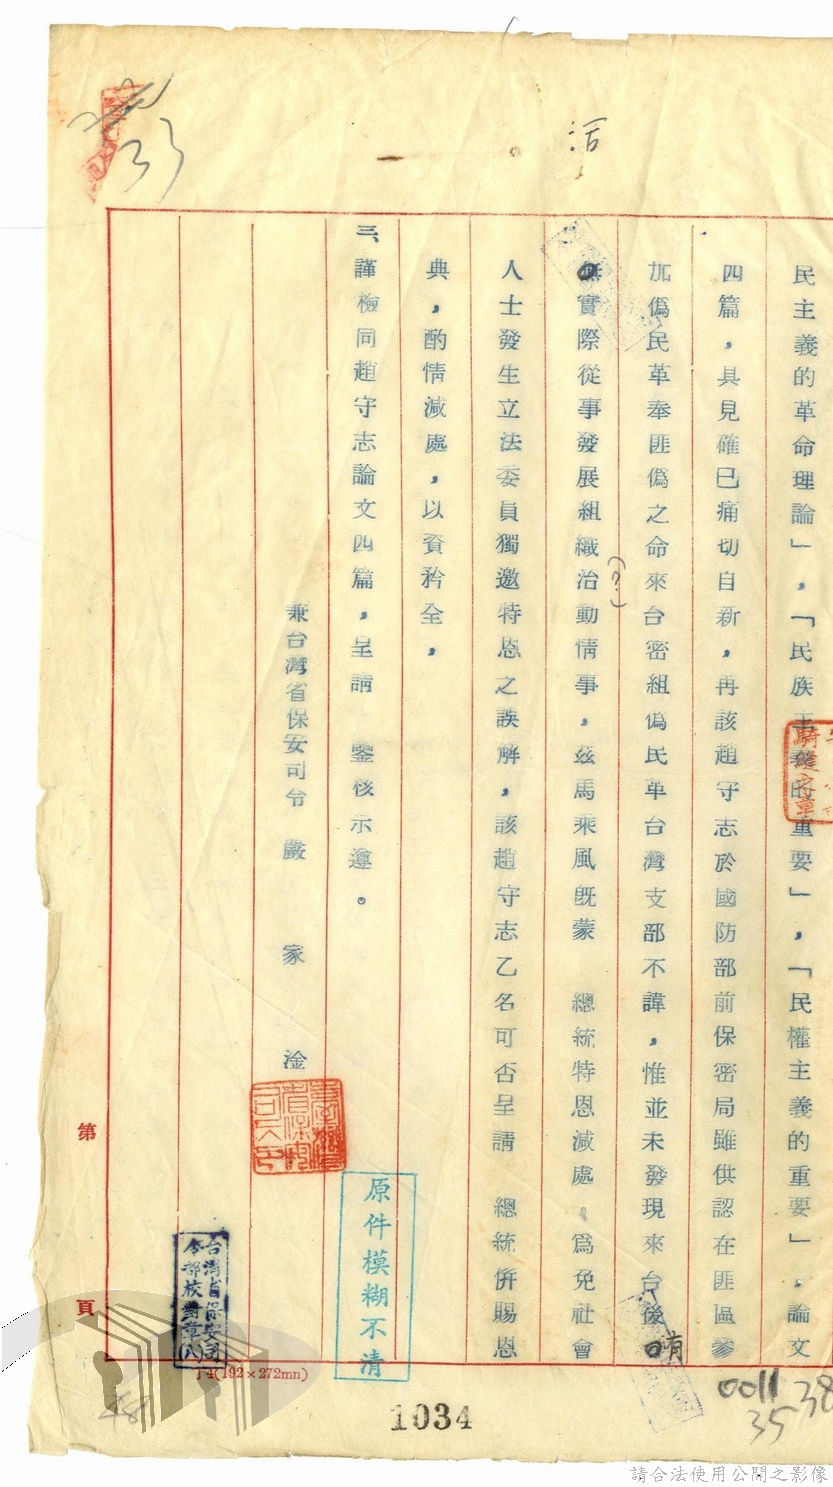 民主義的革命理論」,「民族主義的重要」,「民權主義的重要」,論文
四篇,具見確已痛切自新,再該趙守志於國防部前保密局雖供認在匪區參
加偽民革奉匪偽之命來台密組偽民革台灣支部不諱,惟並未發現來台後
無實際從事發展組織治動情事,茲馬乘風既蒙 總統特恩減處,為免社會
人士發生立法委員獨邀特恩之誤解,該趙守志乙名可否呈請 總統併賜恩
典,酌情減處,以資矜全,
三、謹檢同趙守志論文四篇,呈請 鑒核示遵。
兼台灣省保安司令 嚴 家 淦
(?)
活
33
騎縫之章
原件模糊不清
台灣省保安司
令部校對章(八)
第 頁
(192×272mm)
1034
0011
35
38
48
請合法使用公開之影像